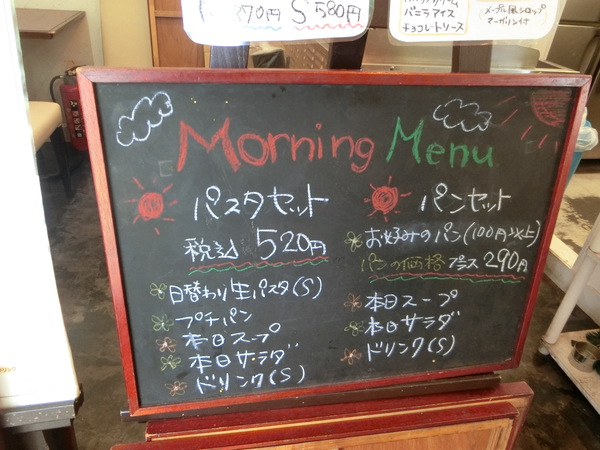 570円 S 580円
バニラアイス
チョコレートソース
メープル風シロップ
マーガリン付
Morning Menu
パスタセット
税込 520円
日替わり生パスタ(S)
プチパン
本日スープ
本日サラダ
ドリンク(S)
パンセット
お好みのパン(100円以上)
パンの価格プラス290円
本日スープ
本日サラダ
ドリンク(S)